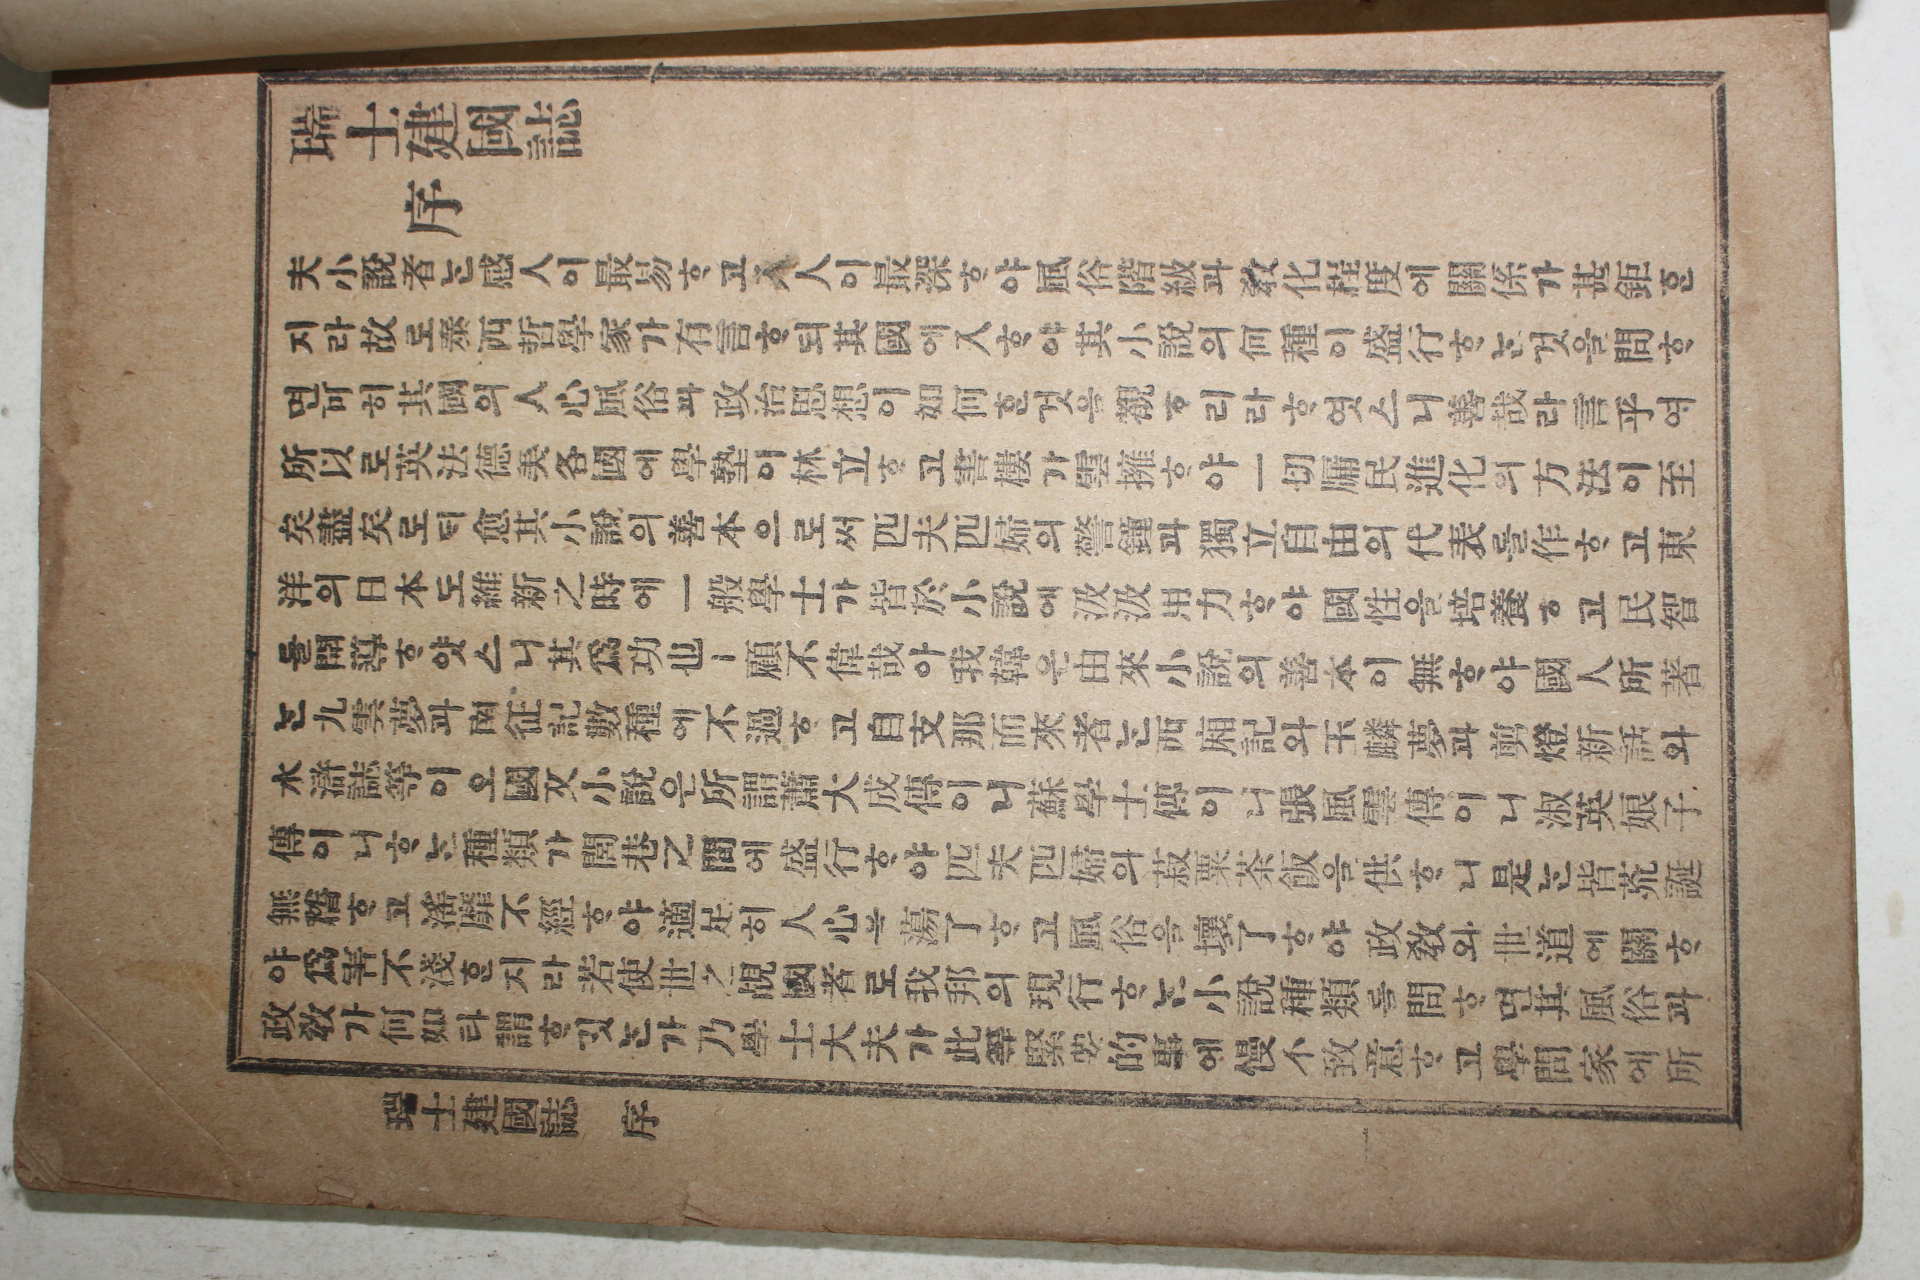 瑞士建國誌
序
夫小說者는感人이最易ᄒᆞ고入人이最深ᄒᆞ야風俗階級과敎化程度에關係가甚鉅ᄒᆞᆫ
지라故로泰西哲學家가有言ᄒᆞ되其國에入ᄒᆞ야其小說의何種이盛行ᄒᆞᄂᆞᆫ것을問ᄒᆞ
면可히其國의人心風俗과政治思想이如何ᄒᆞᆫ것을觀ᄒᆞ리라ᄒᆞ엿스니善哉라言乎여
所以로英法德美各國에學塾이林立ᄒᆞ고書樓가雲擁ᄒᆞ야一切牖民進化의方法이至
矣盡矣로ᄃᆡ愈其小說의善本으로써匹夫匹婦의警鐘과獨立自由의代表를作ᄒᆞ고東
洋의日本도維新之時에一般學士가皆於小說에汲汲用力ᄒᆞ야國性을培養ᄒᆞ고民智
를開導ᄒᆞ얏스니其爲功也ㅣ顧不偉哉아我韓은由來小說의善本이無ᄒᆞ야國人所著
는九雲夢과南征記數種에不過ᄒᆞ고自支那而來者는西廂記와玉麟夢과剪燈新話와
水滸誌等이오國文小說은所謂蕭大成傳이니蘇學士傳이니張風雲傳이니淑英娘子
傳이니ᄒᆞᄂᆞᆫ種類가閭巷之間에盛行ᄒᆞ야匹夫匹婦의菽粟茶飯을供ᄒᆞ니是는皆荒誕
無稽ᄒᆞ고滛靡不經ᄒᆞ야適足히人心을蕩了ᄒᆞ고風俗을壞了ᄒᆞ야政敎와世道에關ᄒᆞ
야爲害不淺ᄒᆞᆫ지라若使世之覘國者로我邦의現行ᄒᆞᄂᆞᆫ小說種類를問ᄒᆞ면其風俗과
政敎가何如타謂ᄒᆞ깃는가乃學士大夫가此等緊要的事에慢不致意ᄒᆞ고學問家에所
瑞士建國誌 序